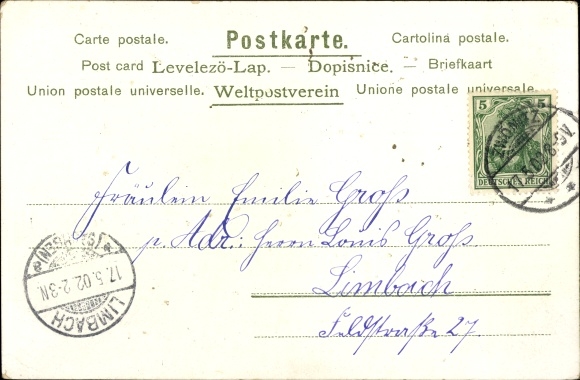 Carte postale. Postkarte. Cartolina postale.
Post card Levelezö-Lap. — Dopisnice. — Briefkaart
Union postale universelle. Weltpostverein Unione postale universale.
5 5
DEUTSCHES REICH
Fräulein Emilie Groß
p. Adr.: Herrn Louis Groß
Limbach
Feldstraße 27.
LIMBACH
17.5.02 2-3N.
(SACHSEN)